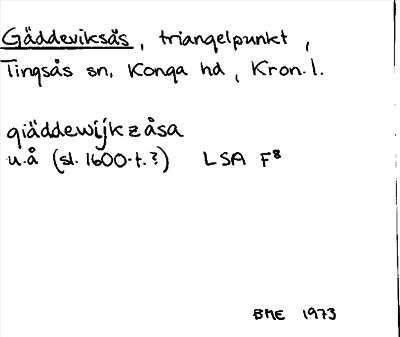 Gäddeviksås, triangelpunkt,
Tingsås sn, Konga hd, Kron.l.
giäddewijkzåsa
u.å (sl. 1600-t.?) LSA F8
BME 1973